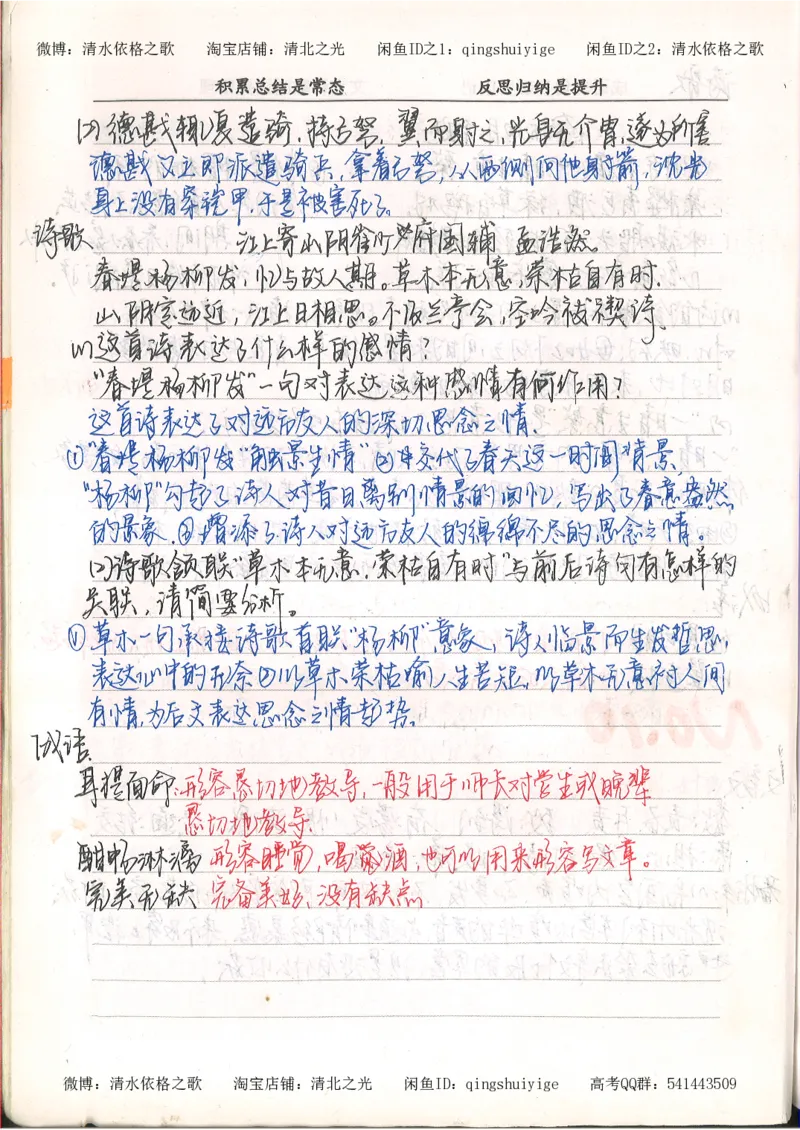 微博：清水依格之歌 淘宝店铺：清北之光 闲鱼ID之1：qingshuiyige 闲鱼ID之2：清水依格之歌
积累总结是常态 反思归纳是提升
(2)德戡辄复遣骑，持弓弩，翼而射之，光身无介胄，遂为所害
德戡又立即派遣骑兵，拿着弓弩，从两侧向他射箭，沈光
身上没有穿铠甲，于是被害死了。
诗歌 江上寄山阴崔少府国辅 孟浩然。
春堤杨柳发，忆与故人期。草木本无意，荣枯自有时.
山阴定远近，江上日相思。不及兰亭会，空吟祓禊诗.
(1)这首诗表达了什么样的感情？
“春堤杨柳发”一句对表达这种感情有何作用？
这首诗表达了对远方友人的深切思念之情.
①“春堤杨柳发“触景生情”②中交代了春天这一时间背景,
“杨柳”勾起了诗人对昔日离别情景的回忆，写出了春意盎然
的景象.③增添了诗人对远方友人的绵绵不尽的思念之情。
(2)诗歌颔联“草木本无意，荣枯自有时”与前后诗句有怎样的
关联，请简要分析。
①草木一句承接诗歌首联“杨柳”意象，诗人临景而生发哲思，
表达心中的无奈②以草木荣枯喻人生苦短，以草木无意衬人间
有情，为后文表达思念之情起势。
成语
耳提面命：形容恳切地教导，一般用于师长对学生或晚辈
恳切地教导.
酣畅淋漓 形容睡觉，喝酒，也可以用来形容写文章。
完美无缺 完备美好，没有缺点
微博：清水依格之歌 淘宝店铺：清北之光 闲鱼ID：qingshuiyige 高考QQ群：541443509